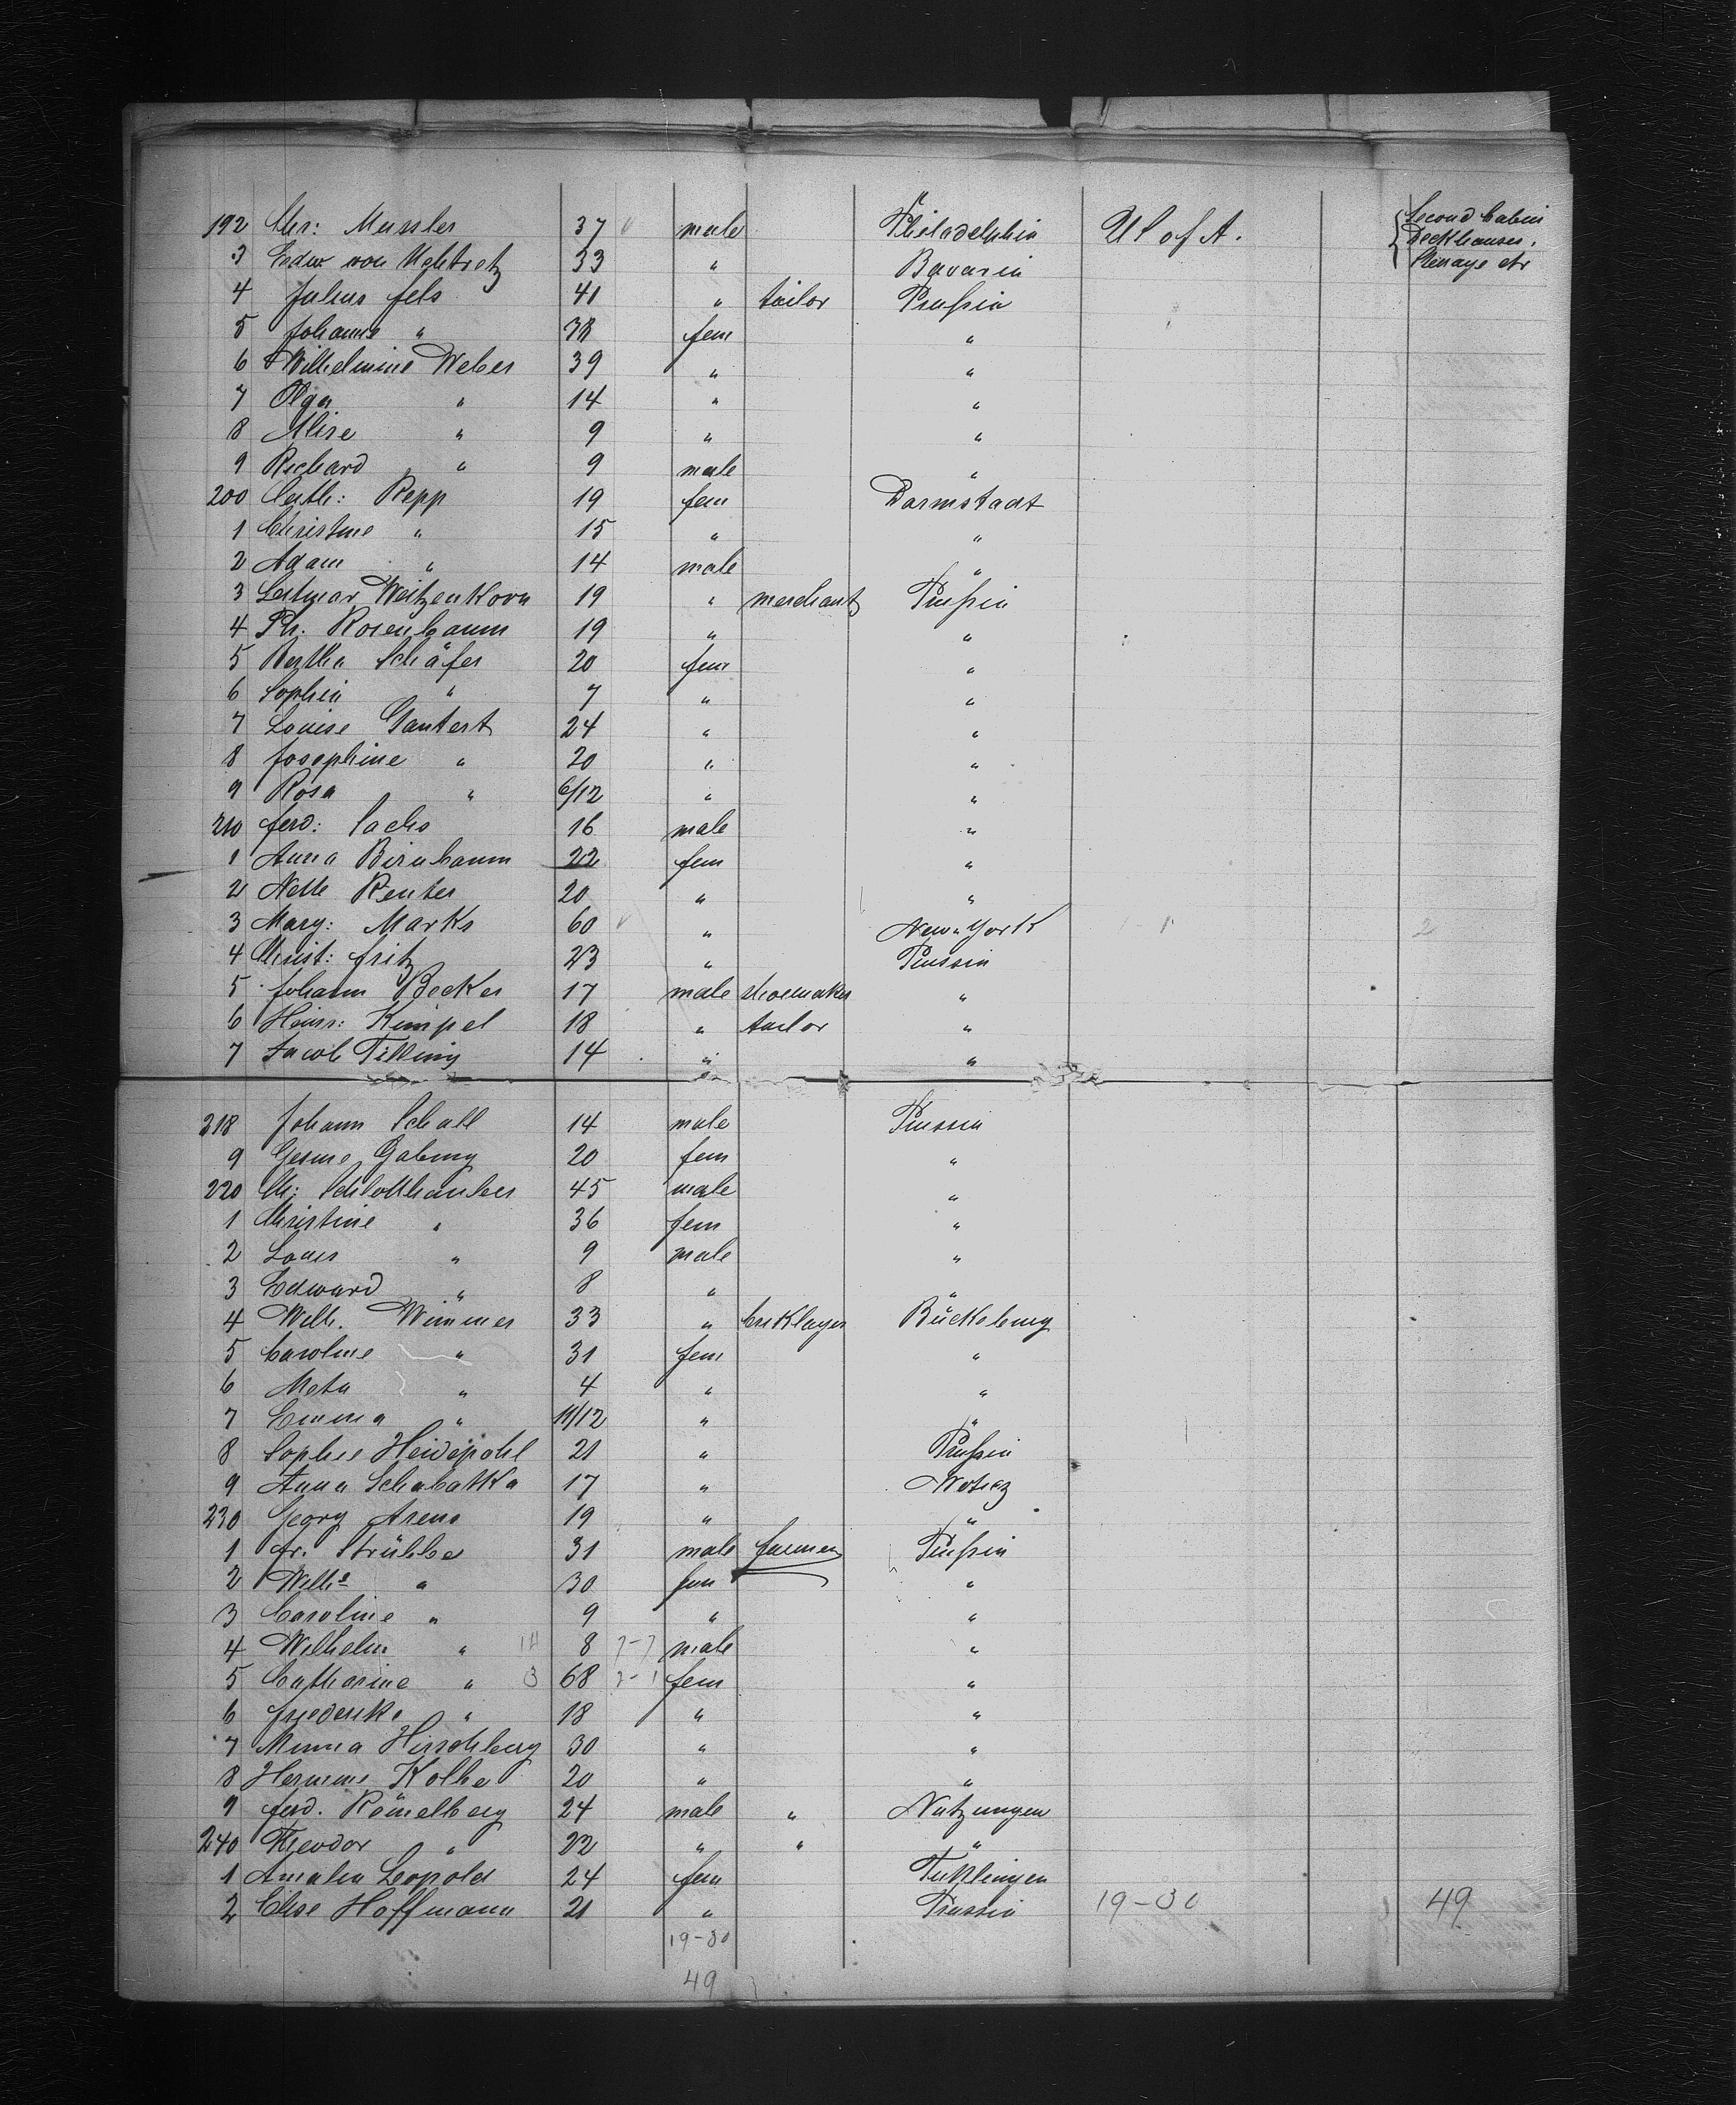 192 Chr: Mussler 37 male Philadelphia U S of A. Second Cabin
Deckhouses.
Steerage etc
3 Edw von 33 " Bavaria
4 Julius Fels 41 " tailor Prußia
5 Johanne " 38 fem "
6 Wilhelmine Weber 39 " "
7 Olga " 14 " "
8 Alise " 9 " "
9 Richard " 9 male "
200 Cath: Repp 19 fem Darmstadt
1 Christine " 15 " "
2 Adam " 14 male "
3 Weitzenkorn 19 " merchant Prußia
4 Ph. Rosenbaum 19 " "
5 Bertha Schäfer 20 fem "
6 Sophia " 7 " "
7 Louise Gantert 24 " "
8 Josephine " 20 " "
9 Rosa " 6/12 " "
210 Ferd: Sachs 16 male "
1 Anna Birnbaum 22 fem "
2 Nette Reuter 20 " "
3 Marg: Marks 60 " New-York 2
4 Christ: Fritz 23 " Prussia
5 Johann Becker 17 male shoemaker "
6 Heinr: Kimpel 18 " tailor "
7 Jacob Tilking 14 " "
218 Johann Schall 14 male Prussia
9 Gesine Gabung 20 fem "
220 Ch: Schlotthauber 45 male "
1 Christine " 36 fem "
2 Louis " 9 male "
3 Edward " 8 " "
4 Wilh. Wimmer 33 " bricklayer Bückeburg
5 Caroline " 31 fem "
6 Meta " 4 " "
7 Emma " 11/12 " "
8 Sophie Heidepohl 21 " Prußia
9 Anna Schabatka 17 "
230 Georg Arens 19 " "
1 Fr. Strübbe 31 male farmer Prußia
2 Wilhe " 30 fem "
3 Caroline " 9 " "
4 Wilhelm " 8 male "
5 Catharine " 3 68 fem "
6 Frederike " 18 " "
7 Minna Hirschberg 30 " "
8 Hermine Kolbe 20 " "
9 Ferd. Römelberg 24 male " Natzungen
240 Theodor " 22 " " "
1 Amalia Leopold 24 fem Tuttlingen
2 Elise Hoffmann 21 " Prussia 19-30 49
19-30
49